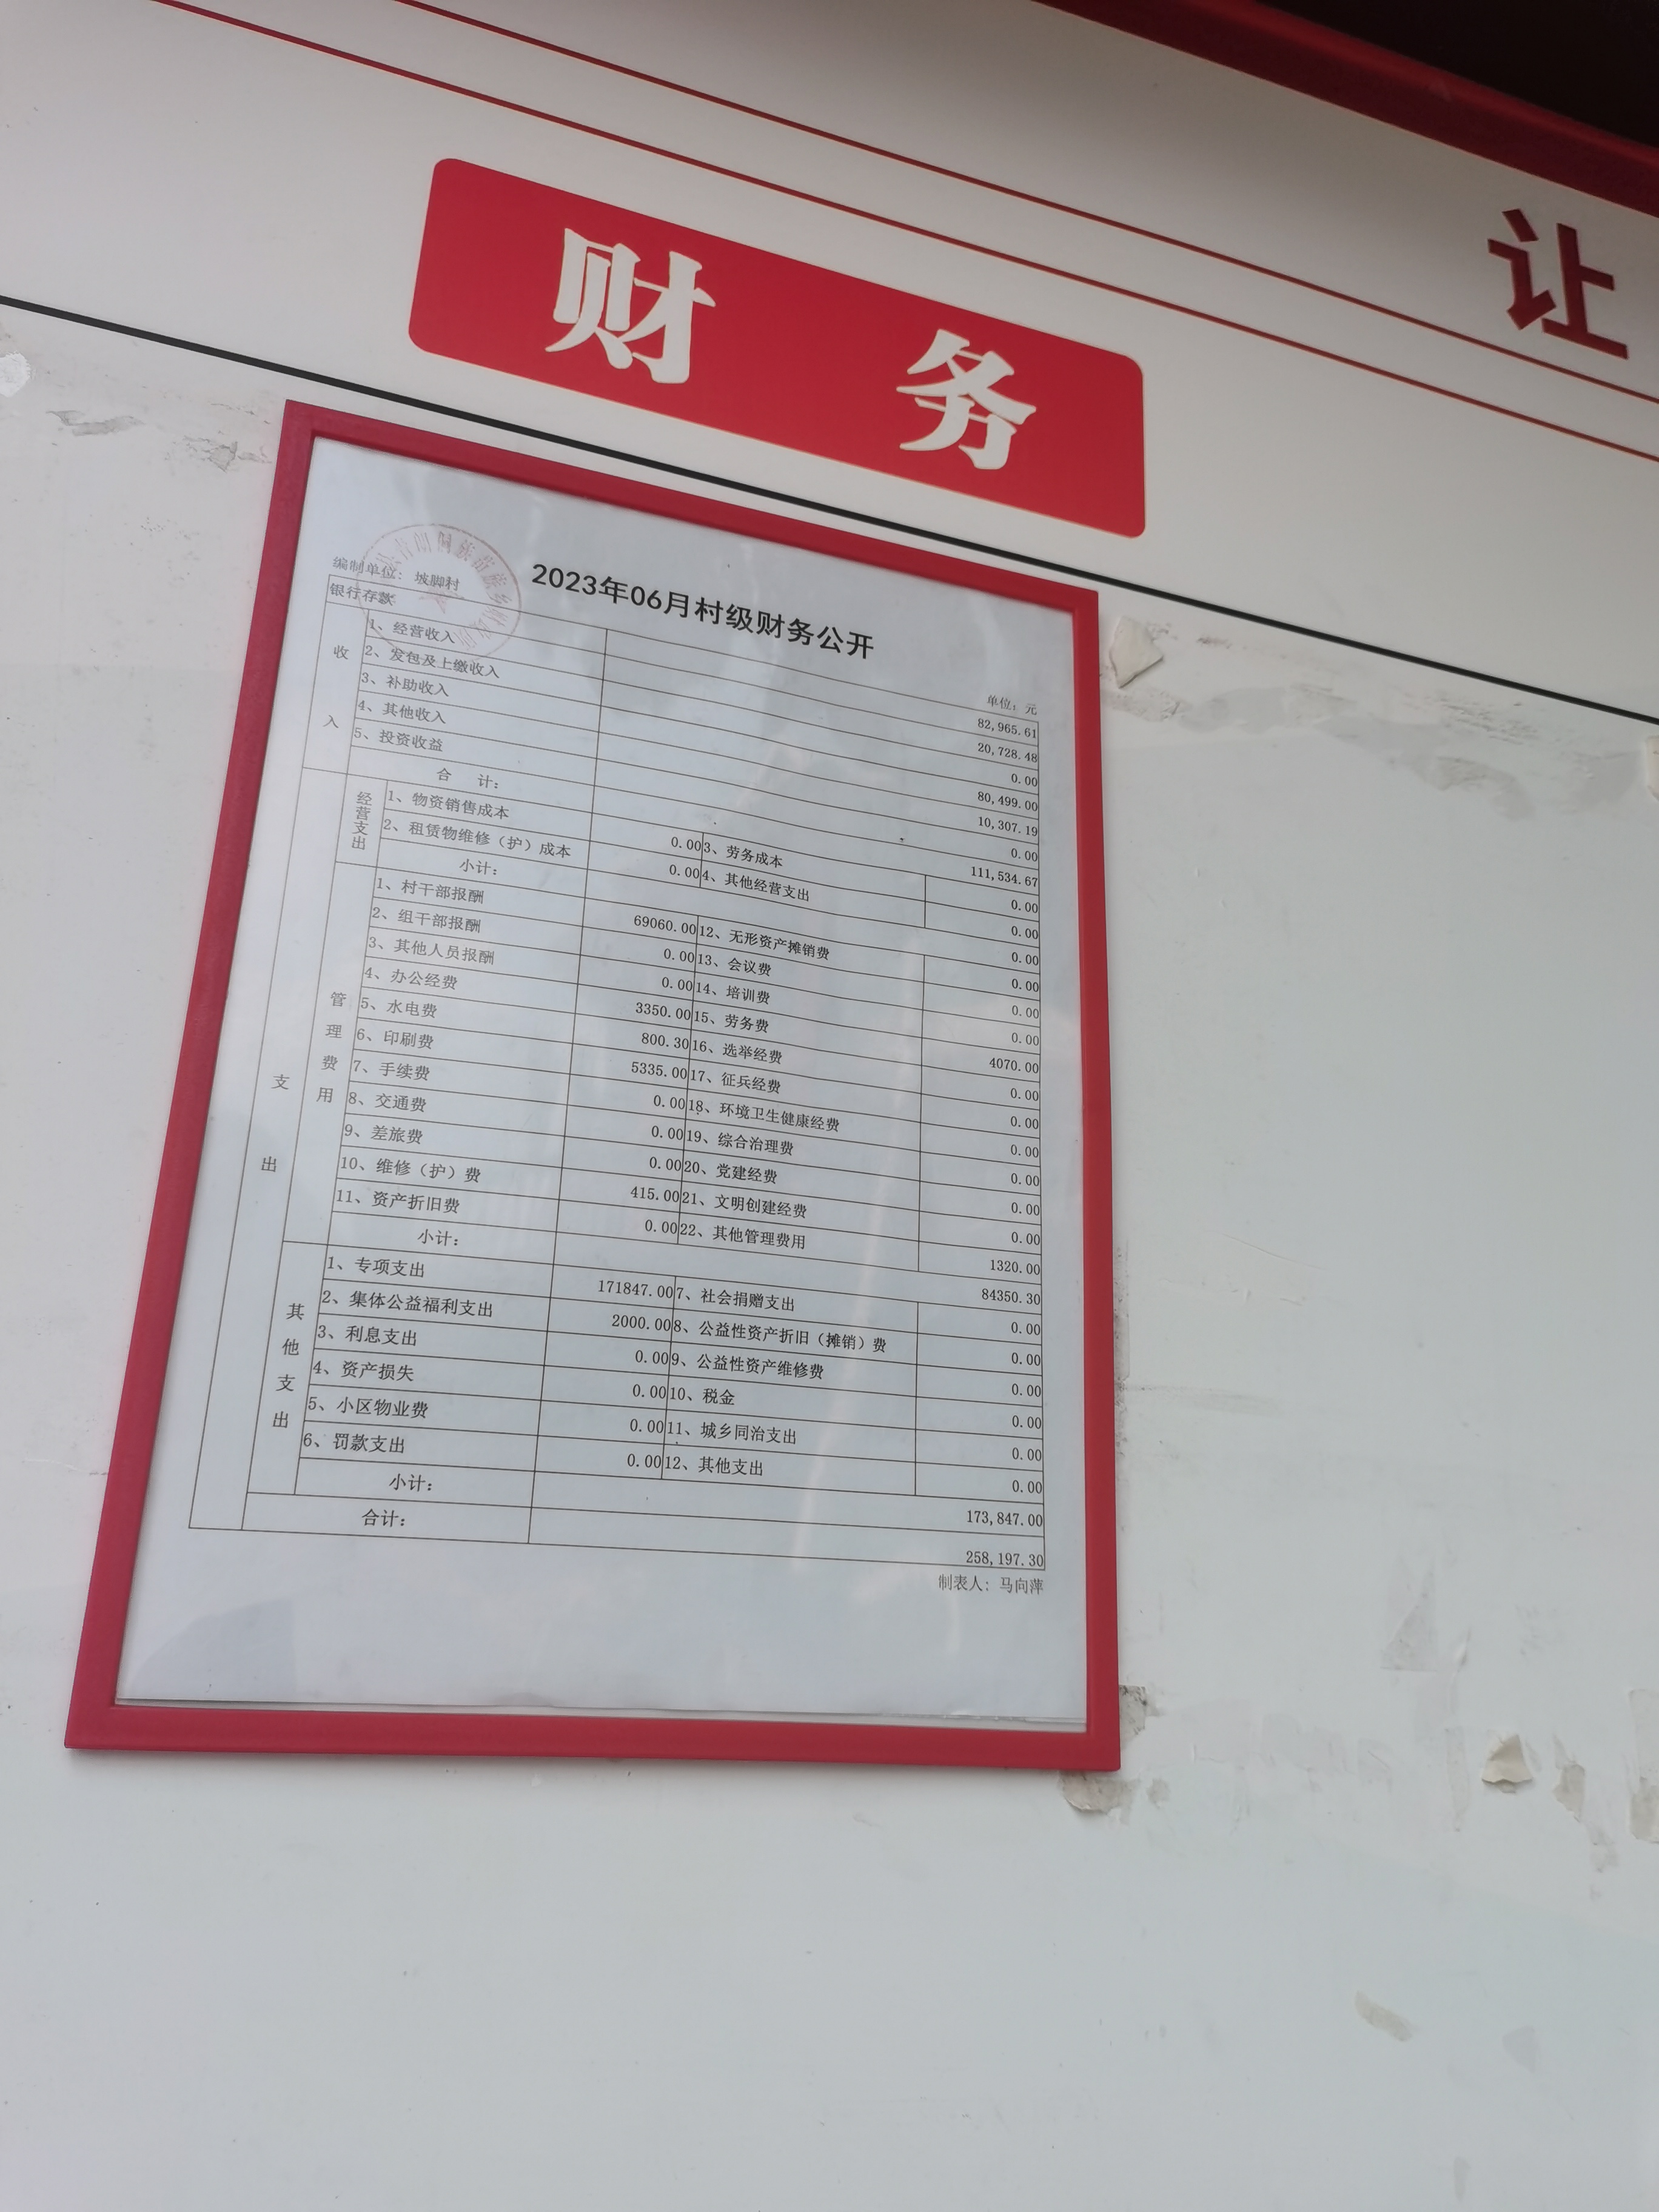 让
财 务
2023年06月村级财务公开
编制单位：坡脚村
单位：元
银行存款 82,965.61
收入
1、经营收入 20,728.48
2、发包及上缴收入 0.00
3、补助收入 80,499.00
4、其他收入 10,307.19
5、投资收益 0.00
合 计： 111,534.67
支出
经营支出
1、物资销售成本 0.00 3、劳务成本 0.00
2、租赁物维修（护）成本 0.00 4、其他经营支出 0.00
小计： 0.00
管理费用
1、村干部报酬 69060.00 12、无形资产摊销费 0.00
2、组干部报酬 0.00 13、会议费 0.00
3、其他人员报酬 0.00 14、培训费 0.00
4、办公经费 3350.00 15、劳务费 4070.00
5、水电费 800.30 16、选举经费 0.00
6、印刷费 5335.00 17、征兵经费 0.00
7、手续费 0.00 18、环境卫生健康经费 0.00
8、交通费 0.00 19、综合治理费 0.00
9、差旅费 0.00 20、党建经费 0.00
10、维修（护）费 415.00 21、文明创建经费 0.00
11、资产折旧费 0.00 22、其他管理费用 1320.00
小计： 84350.30
其他支出
1、专项支出 171847.00 7、社会捐赠支出 0.00
2、集体公益福利支出 2000.00 8、公益性资产折旧（摊销）费 0.00
3、利息支出 0.00 9、公益性资产维修费 0.00
4、资产损失 0.00 10、税金 0.00
5、小区物业费 0.00 11、城乡同治支出 0.00
6、罚款支出 0.00 12、其他支出 0.00
小计： 173,847.00
合计： 258,197.30
制表人：马向萍